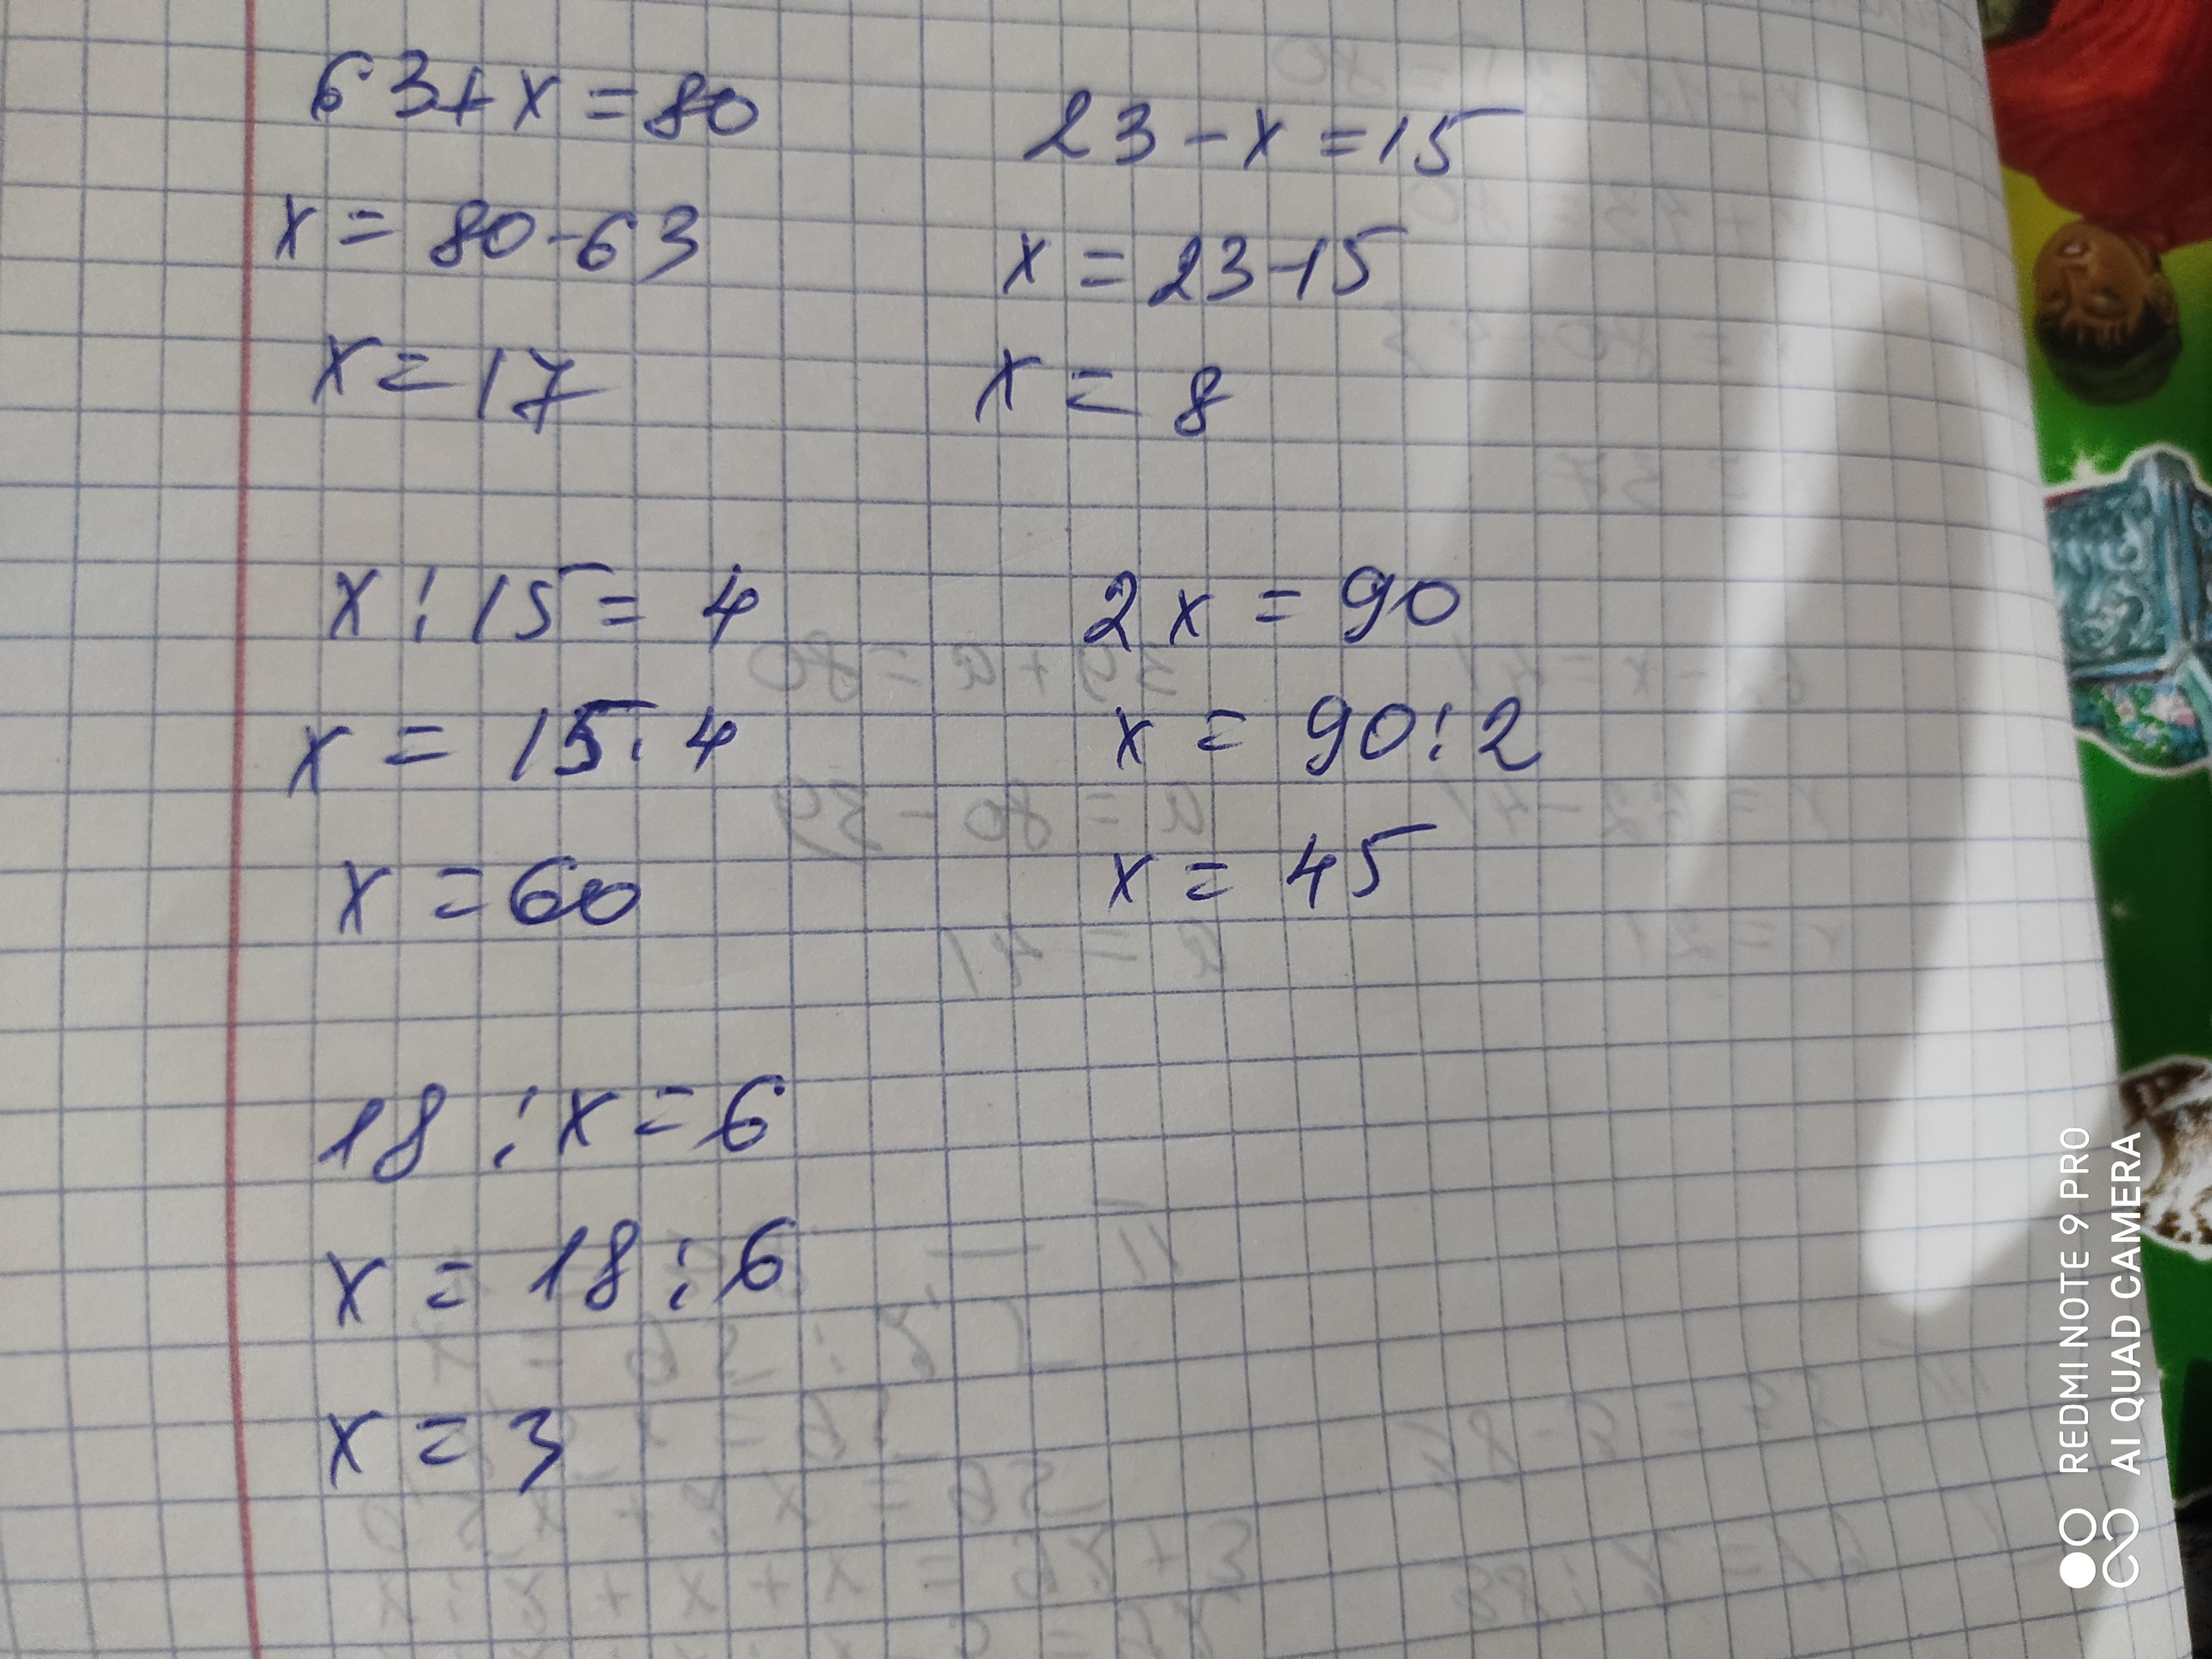 63+x=80
x=80-63
x=17
23-x=15
x=23-15
x=8
x:15=4
x=15·4
x=60
2x=90
x=90:2
x=45
18:x=6
x=18:6
x=3
REDMI NOTE 9 PRO
AI QUAD CAMERA